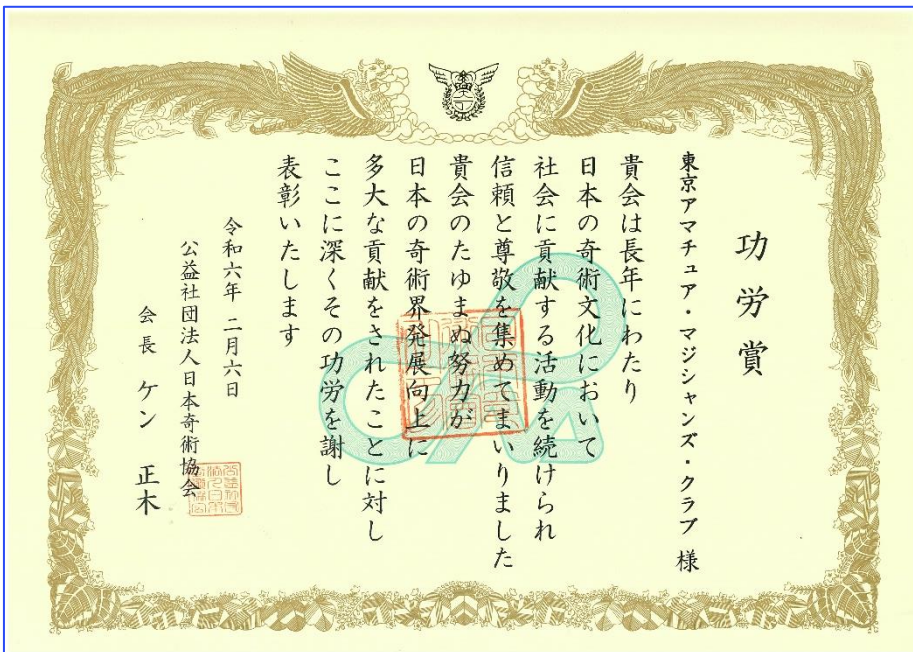 功労賞
東京アマチュア・マジシャンズ・クラブ 様
貴会は長年にわたり
日本の奇術文化において
社会に貢献する活動を続けられ
信頼と尊敬を集めてまいりました
貴会のたゆまぬ努力が
日本の奇術界発展向上に
多大な貢献をされたことに対し
ここに深くその功労を謝し
表彰いたします
令和六年 二月六日
公益社団法人日本奇術協会
会長 ケン 正木